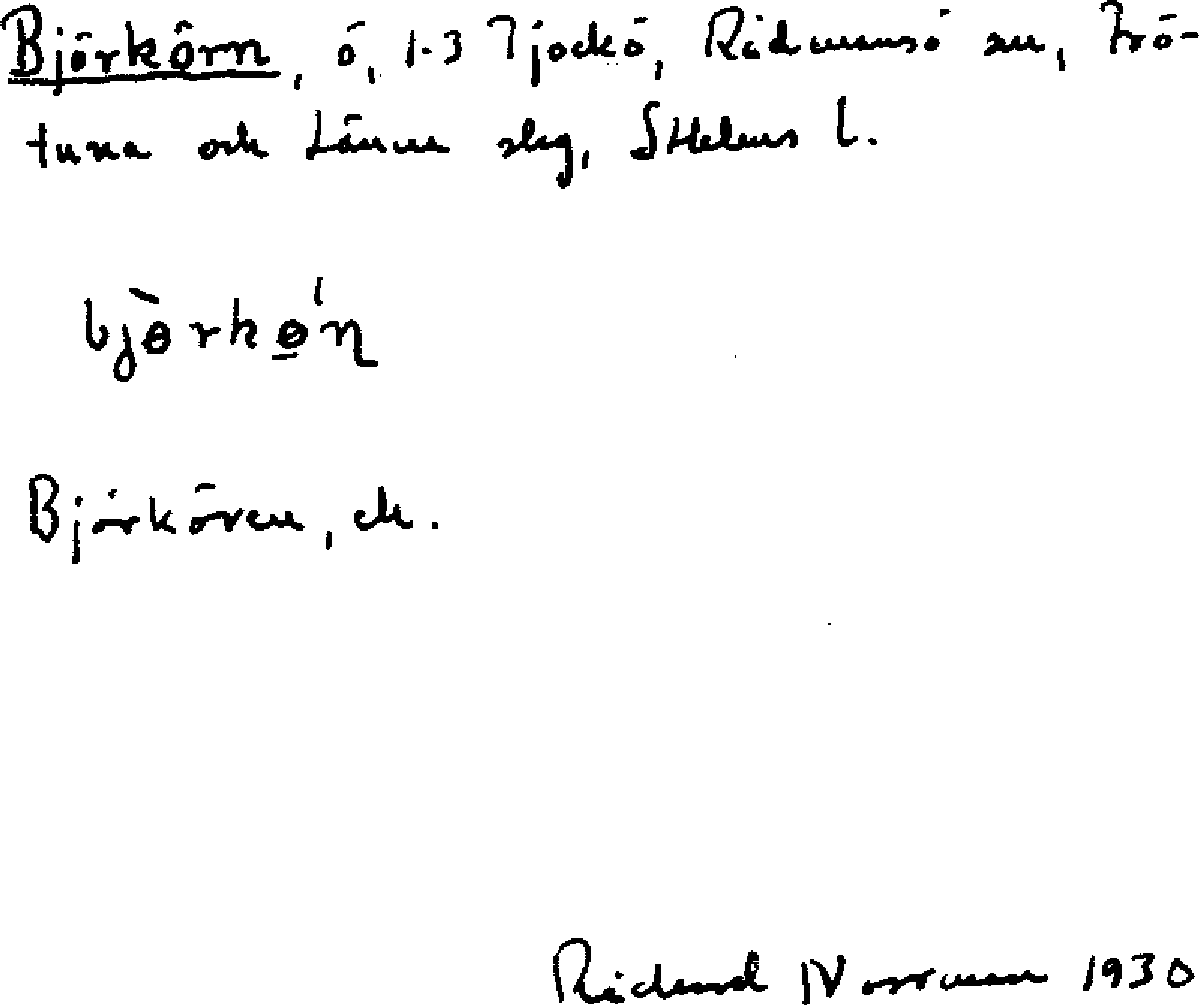 Björkörn, ö, 1-3 Tjockö, Rådmansö sn, Frö-
tuna och Länna slg, Sthlms l.
bjòrkø̠'ɳ
Björkören, ek.
Rickard Norrman 1930